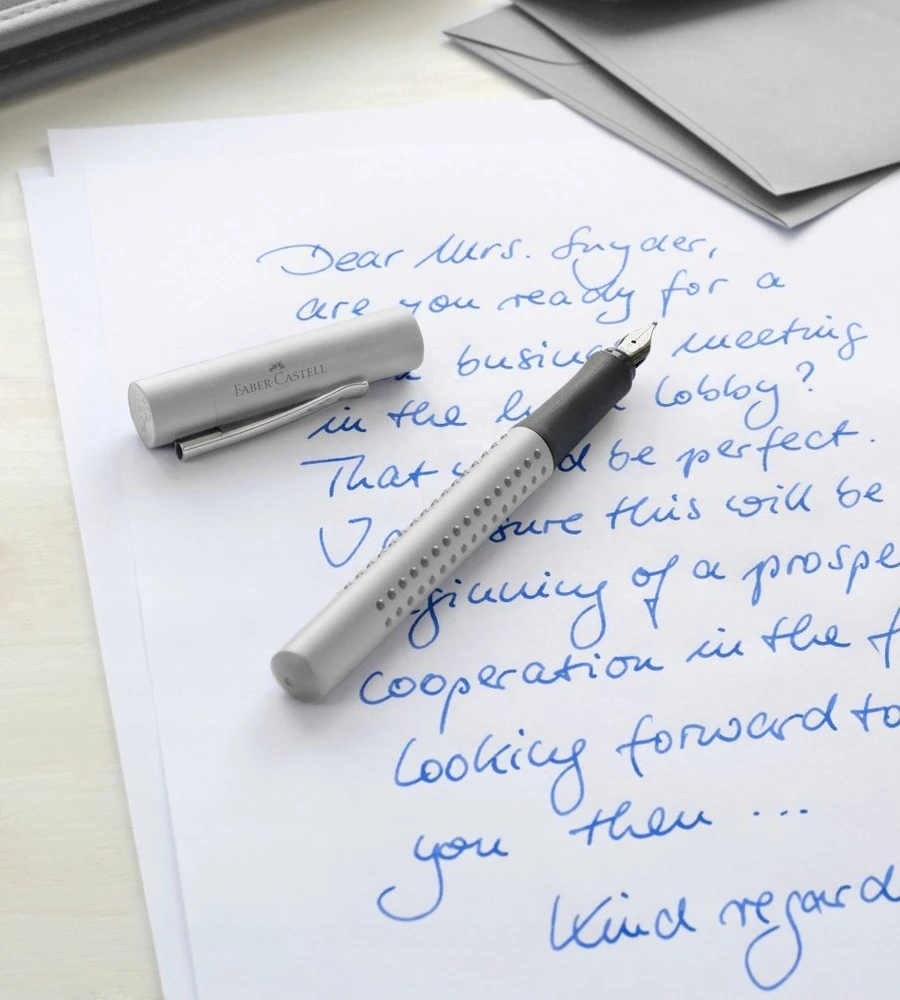 FABER-CASTELL
Dear Mrs. Snyder,
are you ready for a
busine meeting
in the h lobby?
That d be perfect.
sure this will be
ginning of a prospe
cooperation in the f
looking forward to
you then ...
Kind regard